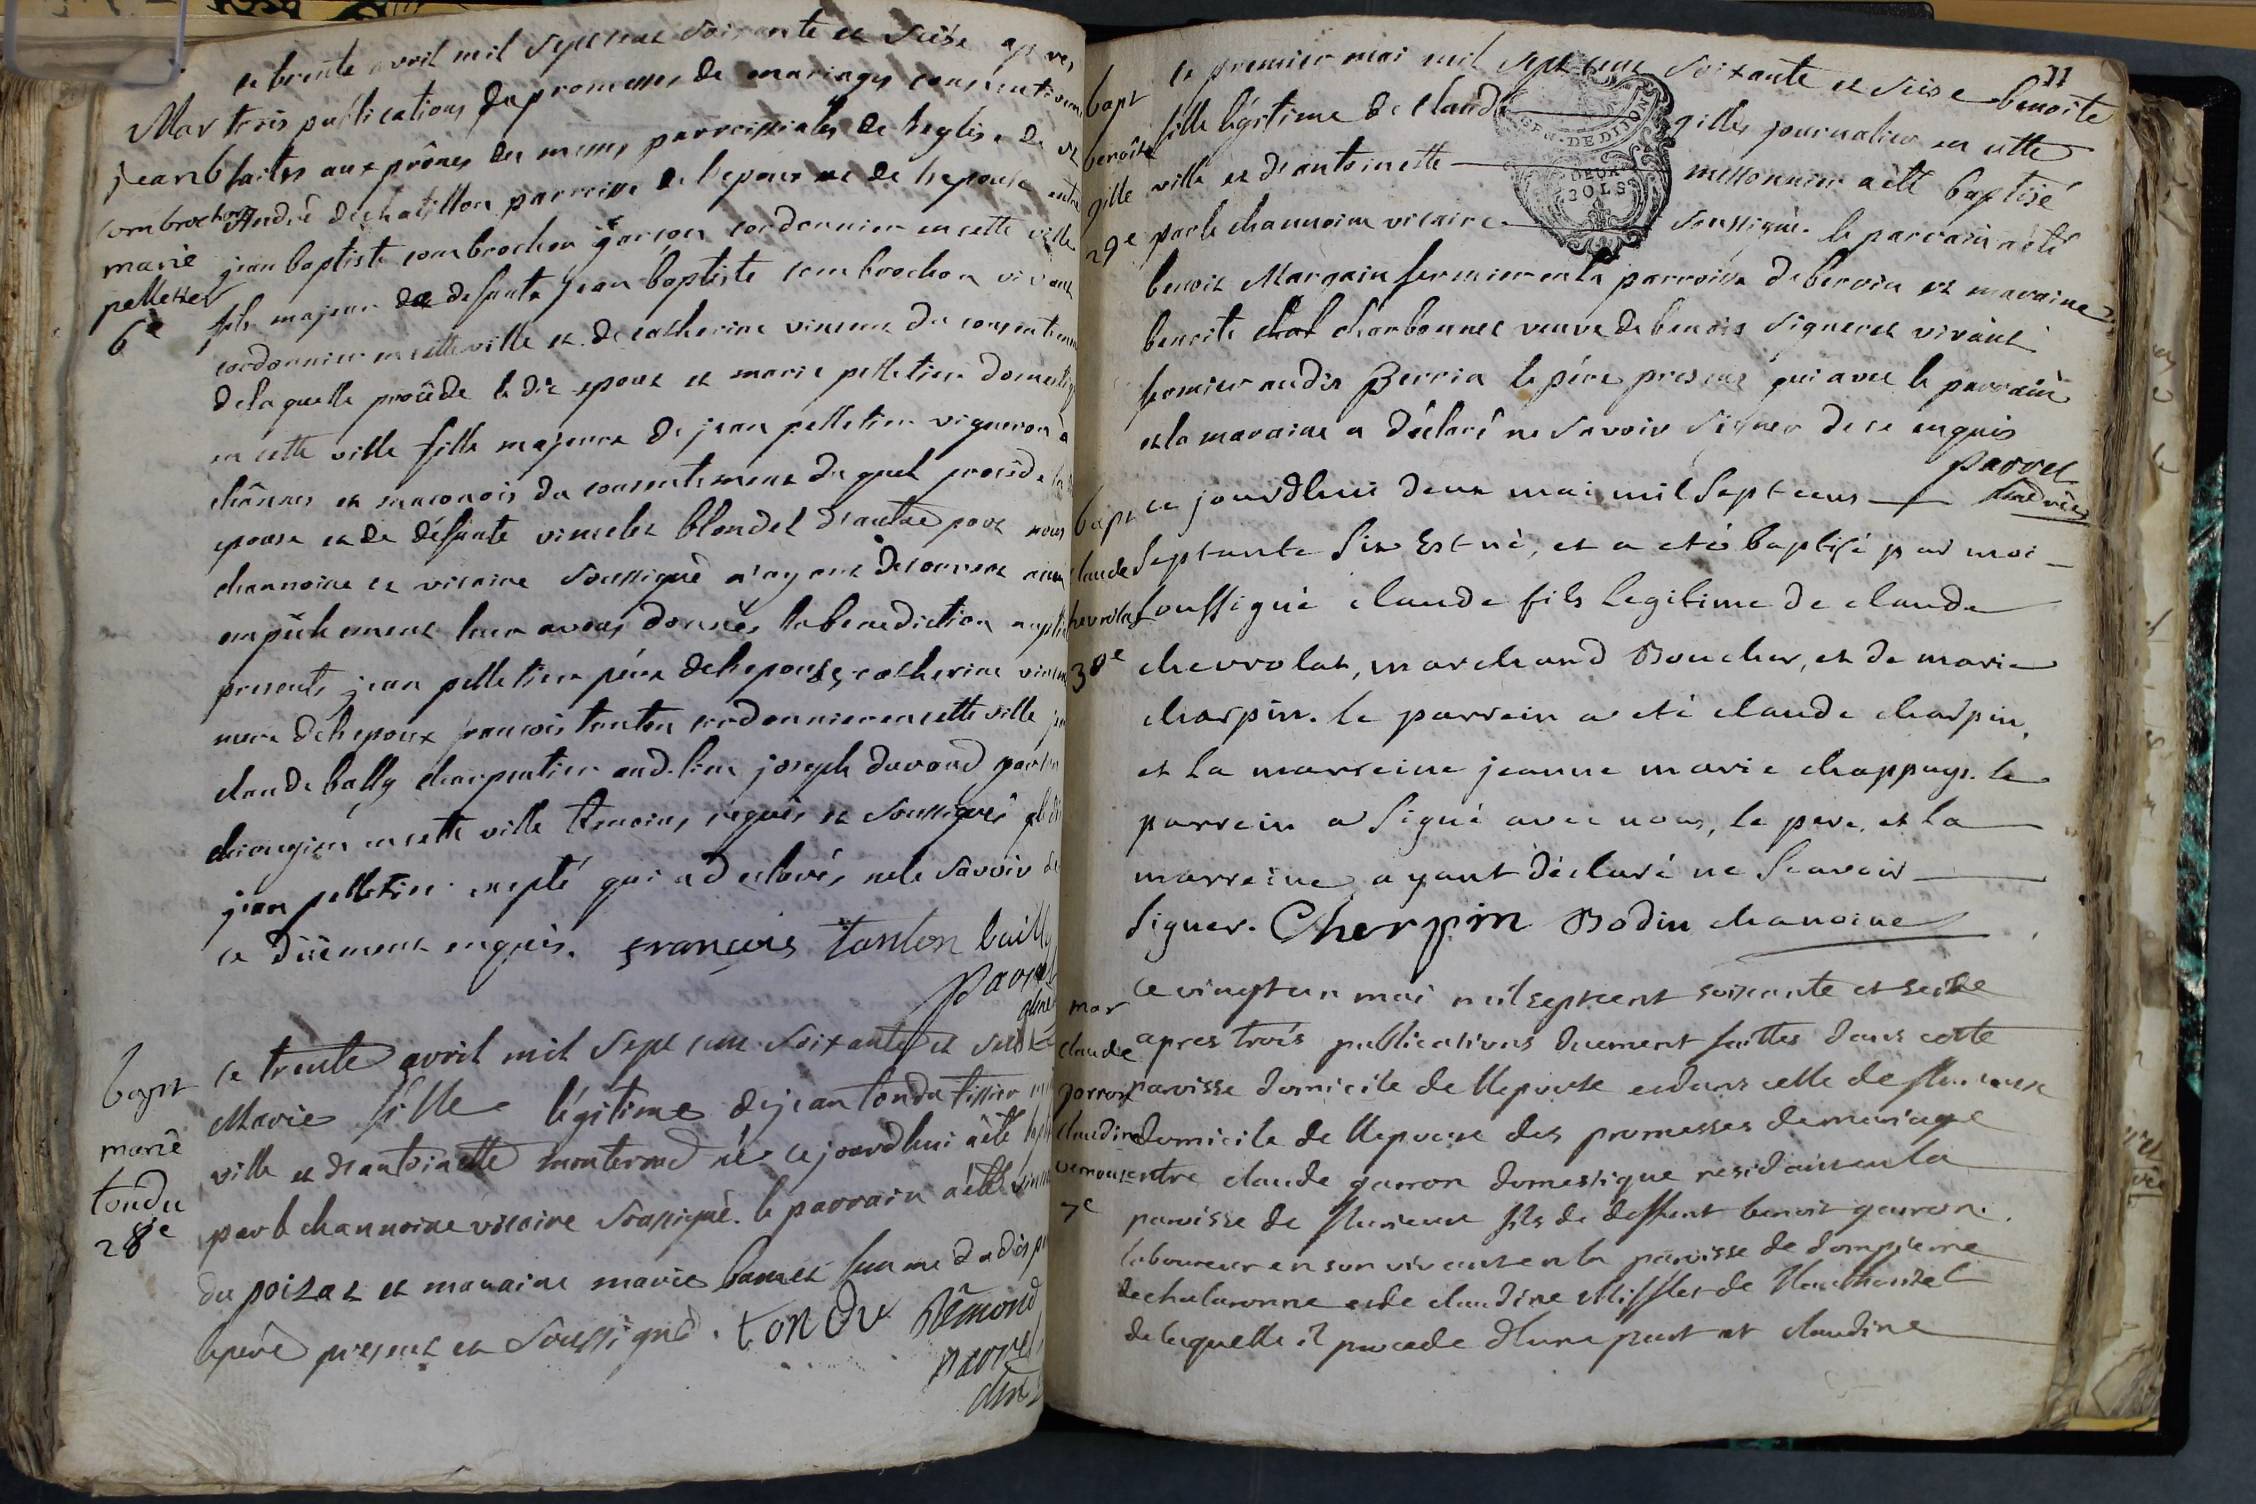 ce trente avril mil sept cent soixante et seise après
Mar trois publications de promesses de mariages consecutivem
jean b faites aux prônes des messes parroissiales de l'eglise de st
combrochon André de chatillon parroisse de l'epoux et de l'epouse entre
marie jean baptiste combrochon garçon cordonnier en cette ville
pelletier fils majeur de defunt jean baptiste combrochon vivant
6e cordonnier en cette ville et de catherine vincent du consentem
de laquelle procéde le dit epoux et marie pelletier domestiq
en cette ville fille majeure de jean pelletier vigneron à
chânnes en maconois du consentement du quel procéde la
epouse et de défunte blondel d'autre part nous
channoine et vicaire soussigné n'ayant decouvert aucun
empêchement leur avons donnés la benediction nuptia
presents jean pelletier père de l'epouse, catherine vincent
mere de l'epoux françois tonton cordonnier en cette ville
claude bally charpentier aud. lieu joseph durand
chirurgien en cette ville témoins requis et soussignés
jean pelletier excepté qui a declarés ne le savoir de
ce düement enquis. françois tonton bailly
parret
chne
ce trente avril mil sept cent soixante et seise
bapt Marie fille légitime de jean tondu tissier
marie ville et d'antoinette monterond née ce jourd'hui a été
tondu par le channoine vicaire soussigné. le parrain a été
28e du poizat et maraine marie femme du dit
le père present et soussigné. tondu Rêmond
parret
chne
11
ce premier mai mil sept cent soixante et seise benoite
bapt fille légitime de claude gilles journalier en cette
benoîte ville et d'antoinette missonnier a été baptisé
gille par le channoine vicaire soussigné. le parrain a été
29e
GEN. DE DIJON
DEUX
SOLS
benoit Margain fermier en la parroisse de bervin et maraine
benoite charbonnet veuve de benoit signeret vivant
fermier au dit le père present qui avec le parrain
et la maraine a déclaré ne savoir signer de ce enquis
parret
chne vicre
bapt ce jourdhui deux mai mil sept cent
claude septante six est né, et a eté baptisé par moi
chevrolat soussigné claude fils legitime de claude
30e chevrolat, marchand Boucher, et de marie
charpin. le parrein a eté claude charpin,
et la marreine jeanne marie chappuys. le
parrein a signé avec nous, le pere, et la
marreine ayant déclaré ne scavoir
signer. Cherpin Bodin chanoine
mar ce vingt un mai mil sept cent soixante et seize
claude apres trois publications duement faittes dans cette
garron paroisse domicile de l'epouse et dans celle de fleurieux
claudine domicile de l'epoux des promesses de mariage
entre claude garron domestique residant en la
7e paroisse de fleurieux fils de deffunt benoit garron
laboureur en son vivant en la paroisse de dompierre
de chalaronne et de claudine
de laquelle il procede d'une part et claudine